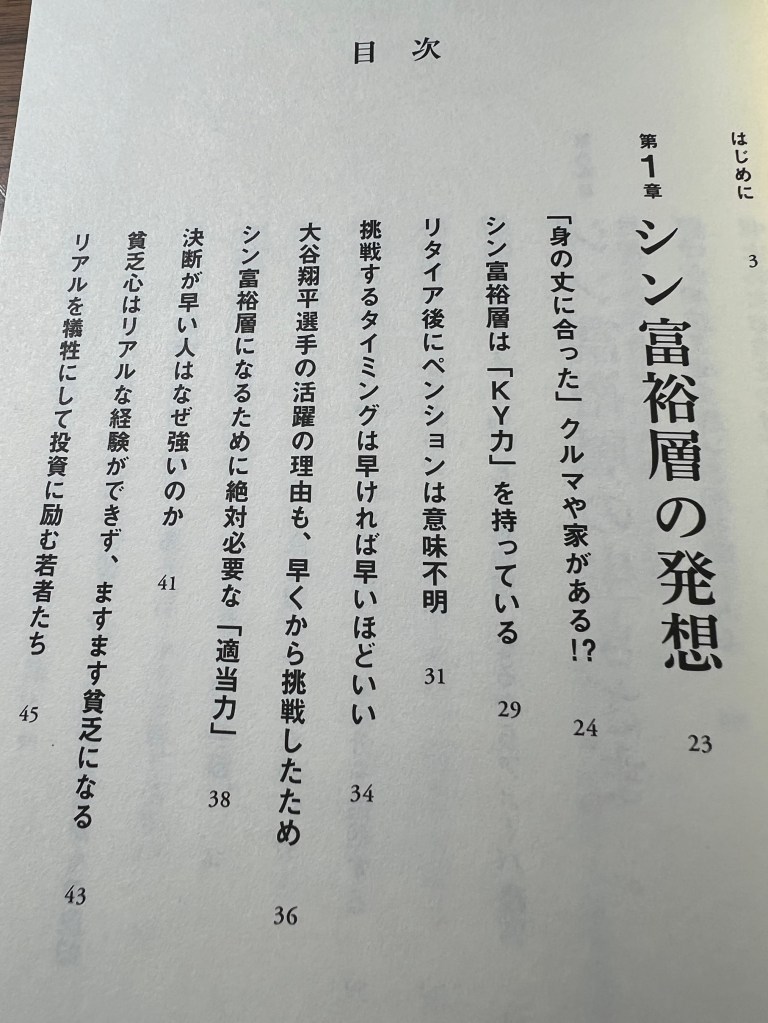 目次
はじめに 3
第1章 シン富裕層の発想 23
「身の丈に合った」クルマや家がある!? 24
シン富裕層は「KY力」を持っている 29
リタイア後にペンションは意味不明 31
挑戦するタイミングは早ければ早いほどいい 34
大谷翔平選手の活躍の理由も、早くから挑戦したため 36
シン富裕層になるために絶対必要な「適当力」 38
決断が早い人はなぜ強いのか 41
貧乏心はリアルな経験ができず、ますます貧乏になる 43
リアルを犠牲にして投資に励む若者たち 45